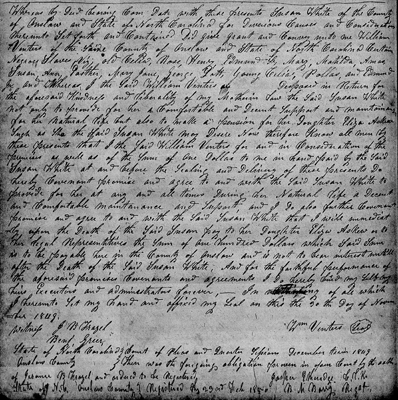 Whereas by Deed bearing Even Date with these presents Susan White of the County
of Onslow and State of North Carolina for Diverse Causes and Considerations
thereunto Set forth and Contained Did give grant and Convey unto me William
Venters of the Said County of Onslow and State of North Carolina Certain
Negroes Slaves Viz. Old Celia, Rose, Henry, Edmund Sr, Mary, Matilda, Amos
Susan, Ann, Esther, Mary Jane, George, Young Celia, Dollar, and Edmund
Jr, and Whereas I the Said William Venters Disposed in Return for
the aforesaid Kindness and liberality of the Mother in law the Said Susan White
not only to provide for her a Comfortable and Decent Support and maintainance
for her Natural life but also to make a provision for her Daughter Eliza Askew
Such as She the Said Susan White may Desire Now therefore Know all men by
these presents that I the Said William Venters for and in Consideration of the
premises as well as of the Sum of One Dollar to me in hand paid by the Said
Susan White at and before the Sealing and Delivery of these presents Do
hereby Covenant promise and agree to and with the Said Susan White to
provide for her at my and During her Natural life a Decent
and Comfortable Maintainance and Support and I do also further Covenant
promise and agree to and with the Said Susan White that I will immediat
ly upon the Death of the Said Susan pay to her Daughter Eliza Askew or to
her legal Representatives the Sum of One Hundred Dollars which Said Sum
is to be payable here in the County of Onslow and is not to bear interest until
after the Death of the Said Susan White; And for the faithful performance of
the aforesaid promises Covenants and agreements I do hereby bind myself my
heirs Executors and administrators forever, In of all which
I hereunto Set my hand and affixed my Seal on this the 30th day of Novem
ber 1849
witness J B Wm Venters Seal
Benj. Greer
State of North Carolina Court of Pleas and Quarter Sessions December term 1849
Onslow County Then was the foregoing obligation proven in open Court by the oath
of and ordered to be Registered Jasper Etheridge C.C.C.
State of N.C. Onslow County Registered 1850 Regst.